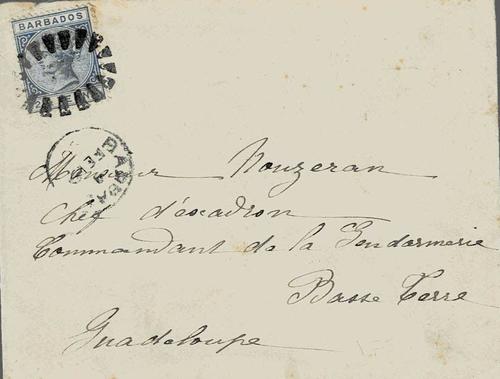 BARBADOS
Monsieur Nouzeran
Chef d'escadron
Commandant de la Gendarmerie
Basse Terre
Guadeloupe